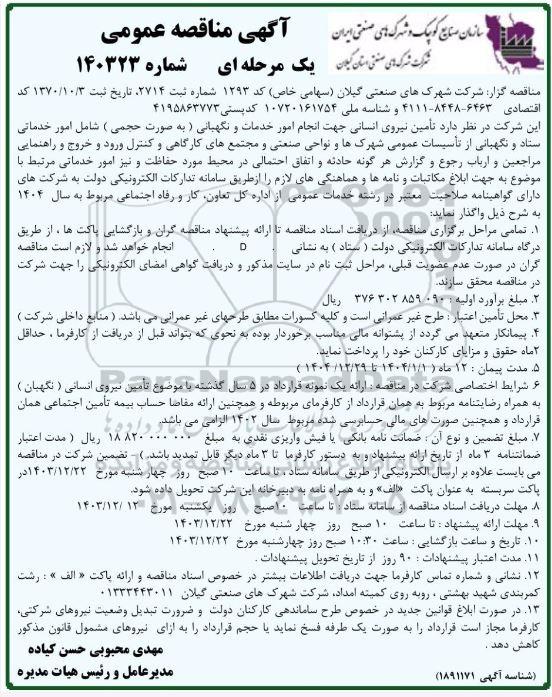 سازمان صنایع کوچک و شهرک های صنعتی ایران
شرکت شهرک های صنعتی استان گیلان
آگهی مناقصه عمومی
یک مرحله ای شماره ۱۴۰۳۲۳
مناقصه گزار: شرکت شهرک های صنعتی گیلان (سهامی خاص) کد ۱۲۹۳ شماره ثبت ۲۷۱۴، تاریخ ثبت ۱۳۷۰/۱۰/۳ کد
اقتصادی ۶۴۶۳-۸۴۴۸-۴۱۱۱ و شناسه ملی ۱۰۷۲۰۱۶۱۷۵۴ کدپستی۴۱۹۵۸۶۳۷۷۳
این شرکت در نظر دارد تأمین نیروی انسانی جهت انجام امور خدمات و نگهبانی ( به صورت حجمی ) شامل امور خدماتی
ستاد و نگهبانی از تأسیسات عمومی شهرک ها و نواحی صنعتی و مجتمع های کارگاهی و کنترل ورود و خروج و راهنمایی
مراجعین و ارباب رجوع و گزارش هر گونه حادثه و اتفاق احتمالی در محیط مورد حفاظت و نیز امور خدماتی مرتبط با
موضوع به جهت ابلاغ مکاتبات و نامه ها و هماهنگی های لازم را ازطریق سامانه تدارکات الکترونیکی دولت به شرکت های
دارای گواهینامه صلاحیت معتبر در رشته خدمات عمومی از اداره کل تعاون، کار و رفاه اجتماعی مربوط به سال ۱۴۰۴
به شرح ذیل واگذار نماید:
۱. تمامی مراحل برگزاری مناقصه، از دریافت اسناد مناقصه تا ارائه پیشنهاد مناقصه گران و بازگشایی پاکت ها ، از طریق
درگاه سامانه تدارکات الکترونیکی دولت ( ستاد ) به نشانی . D . انجام خواهد شد و لازم است مناقصه
گران در صورت عدم عضویت قبلی، مراحل ثبت نام در سایت مذکور و دریافت گواهی امضای الکترونیکی را جهت شرکت
در مناقصه محقق سازند.
۲. مبلغ برآورد اولیه : ۰۹۰ ۸۵۹ ۳۰۲ ۳۷۶ ریال
۳. محل تأمین اعتبار : طرح غیر عمرانی است و کلیه کسورات مطابق طرحهای غیر عمرانی می باشد. ( منابع داخلی شرکت )
۴. پیمانکار متعهد می گردد از پشتوانه مالی مناسب برخوردار بوده به نحوی که بتواند قبل از دریافت از کارفرما ، حداقل
۲ماه حقوق و مزایای کارکنان خود را پرداخت نماید.
۵. مدت پیمان : ۱۲ ماه ( ۱۴۰۴/۱/۱ تا ۱۴۰۴/۱۲/۲۹ )
۶. شرایط اختصاصی شرکت در مناقصه : ارائه یک نمونه قرارداد در ۵ سال گذشته با موضوع تأمین نیروی انسانی ( نگهبان )
به همراه رضایتنامه مربوط به همان قرارداد از کارفرمای مربوطه و همچنین ارائه مفاصا حساب بیمه تأمین اجتماعی همان
قرارداد و همچنین صورت های مالی حسابرسی شده مربوط سال ۱۴۰۲ الزامی می باشد.
۷. مبلغ تضمین و نوع آن : ضمانت نامه بانکی یا فیش واریزی نقدی به مبلغ ۰۰۰ ۰۰۰ ۸۲۰ ۱۸ ریال ( مدت اعتبار
ضمانتنامه ۳ ماه از تاریخ ارائه پیشنهاد و به دستور کارفرما تا ۳ ماه دیگر قابل تمدید باشد. ) - تضمین شرکت در مناقصه
می بایست علاوه بر ارسال الکترونیکی از طریق سامانه ستاد ، تا ساعت ۱۰ صبح روز چهار شنبه مورخ ۱۴۰۳/۱۲/۲۲در
پاکت سربسته به عنوان پاکت «الف» و به همراه نامه به دبیرخانه این شرکت تحویل داده شود.
۸. مهلت دریافت اسناد مناقصه از سامانه ستاد : تا ساعت ۱۰صبح روز یکشنبه مورخ ۱۴۰۳/۱۲/ ۱۲
۹. مهلت ارائه پیشنهاد : تا ساعت ۱۰ صبح روز چهار شنبه مورخ ۱۴۰۳/۱۲/۲۲
۱۰. تاریخ و ساعت بازگشایی : ساعت ۱۰:۳۰ صبح روز چهارشنبه مورخ ۱۴۰۳/۱۲/۲۲
۱۱. مدت اعتبار پیشنهادات : ۹۰ روز از تاریخ تحویل پیشنهادات .
۱۲. نشانی و شماره تماس کارفرما جهت دریافت اطلاعات بیشتر در خصوص اسناد مناقصه و ارائه پاکت « الف » : رشت
کمربندی شهید بهشتی ، روبه روی کمیته امداد، شرکت شهرک های صنعتی گیلان ۰۱۳۳۳۴۴۳۰۱۱
۱۳. در صورت ابلاغ قوانین جدید در خصوص طرح ساماندهی کارکنان دولت و ضرورت تبدیل وضعیت نیروهای شرکتی،
کارفرما مجاز است قرارداد را به صورت یک طرفه فسخ نماید یا حجم قرارداد را به ازای نیروهای مشمول قانون مذکور
کاهش دهد .
مهدی محبوبی حسن کیاده
مدیرعامل و رئیس هیات مدیره
(شناسه آگهی ۱۸۹۱۱۷۱)